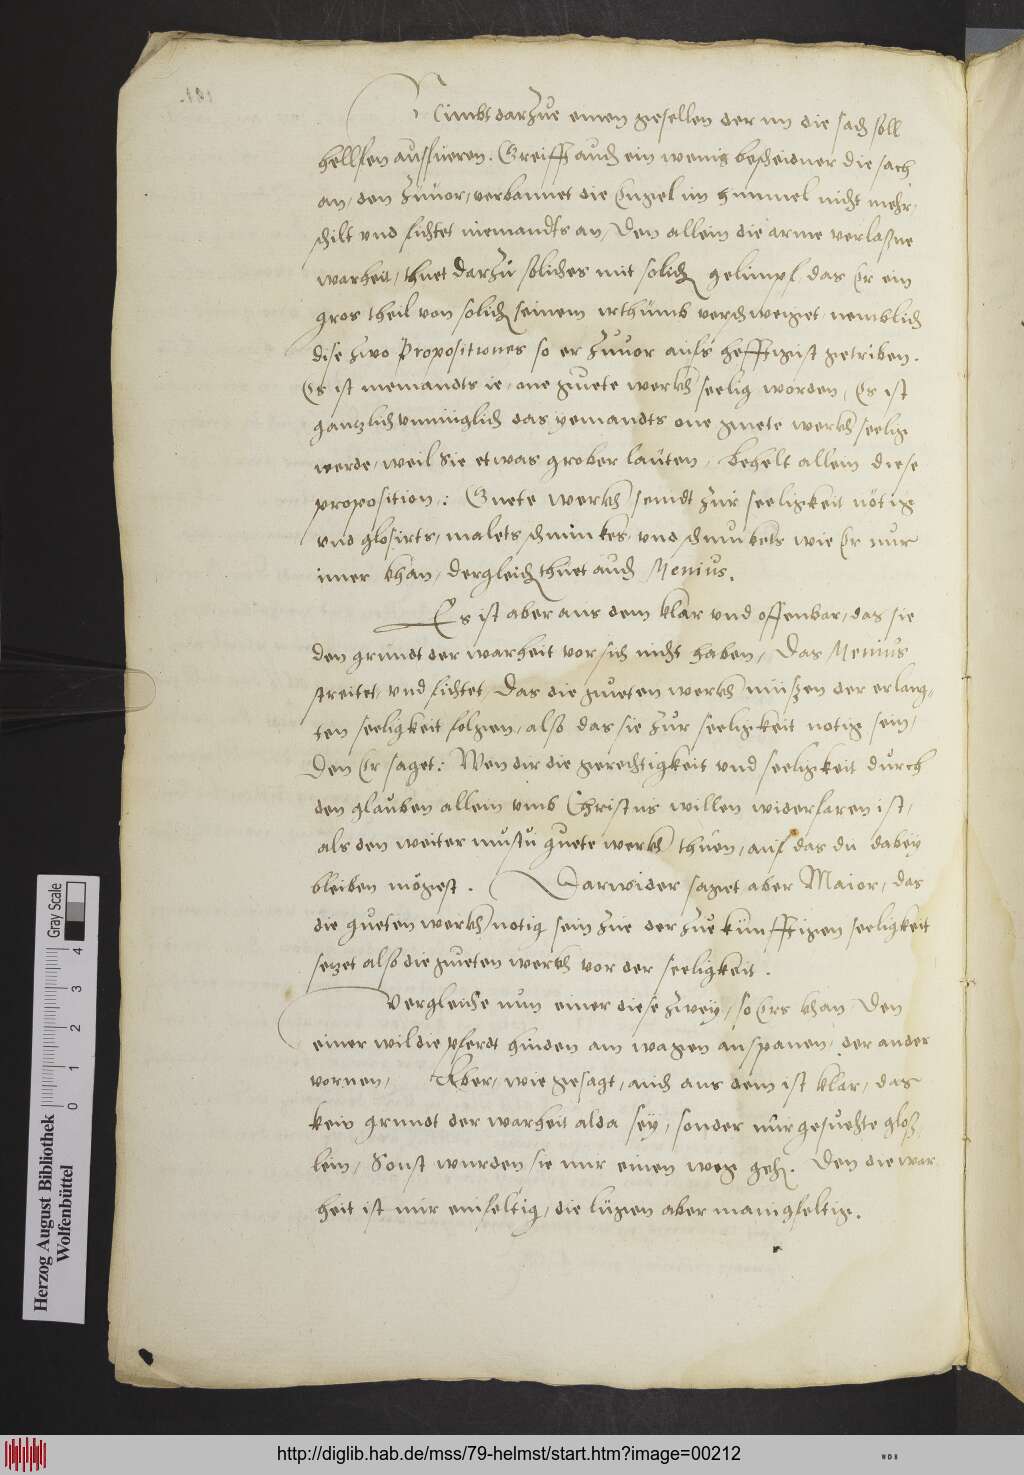 Nimbt darzue einen gesellen der im die sach soll
helffen ausfüeren. Greifft auch ein wenig bescheidner die sach
an, den zuuor, verbannet die Engel im himmel nicht mehr,
schilt und fichtet niemandts an, Den allein die arme verlaßne
warheit, thuet darzu soliches mit solich gelimpf, das Er ein
gros theil von solich seinem irthumb verschweiget, nemblich
dise zwo Propositiones so er zuuor aufs hefftigist getriben.
Es ist niemandts ie, one guete werkh seelig worden, Es ist
gantzlich unmüglich das yemandts one guete werkh seelig
werde, weil Sie etwas grober lauten, behelt allein diese
proposition: Guete werkh seindt zur seeligkeit nötig
und glosirts, malets schminkes, und schmukets wie Er nur
imer khan, dergleich thuet auch Menius.
Es ist aber aus dem klar und offenbar, das sie
den grundt der warheit vor sich nicht haben, Das Menius
streitet, und fichtet, Das die gueten werkh müssen der erlang-
ten seeligkeit folgen, also das sie zur seeligkeit notig sein,
Den Er saget: Wen dir die gerechtigkeit und seeligkeit durch
den glauben allein umb Christus willen widerfaren ist,
als den weiter mustu guete werkh thuen, auf das du dabey
bleiben mögest. Darwider saget aber Maior, das
die gueten werkh notig sein zue der zuekünfftigen seeligkeit
setzet also die gueten werkh vor der seeligkeit.
Vergleiche nun einer diese zwey, so Ers khan, Den
einer wil die pferdt hinden am wagen anspanen, der ander
vornen, Aber, wie gesagt, auch aus dem ist klar, das
kein grundt der warheit alda sey, sonder nur gesuechte gloß
lein, Sonst wurden sie nur einen weg gehn. Den die war
heit ist nur einfeltig, die lügen aber manigfeltig.
Gray Scale
0 1 2 3 4
Herzog August Bibliothek
Wolfenbüttel
http://diglib.hab.de/mss/79-helmst/start.htm?image=00212